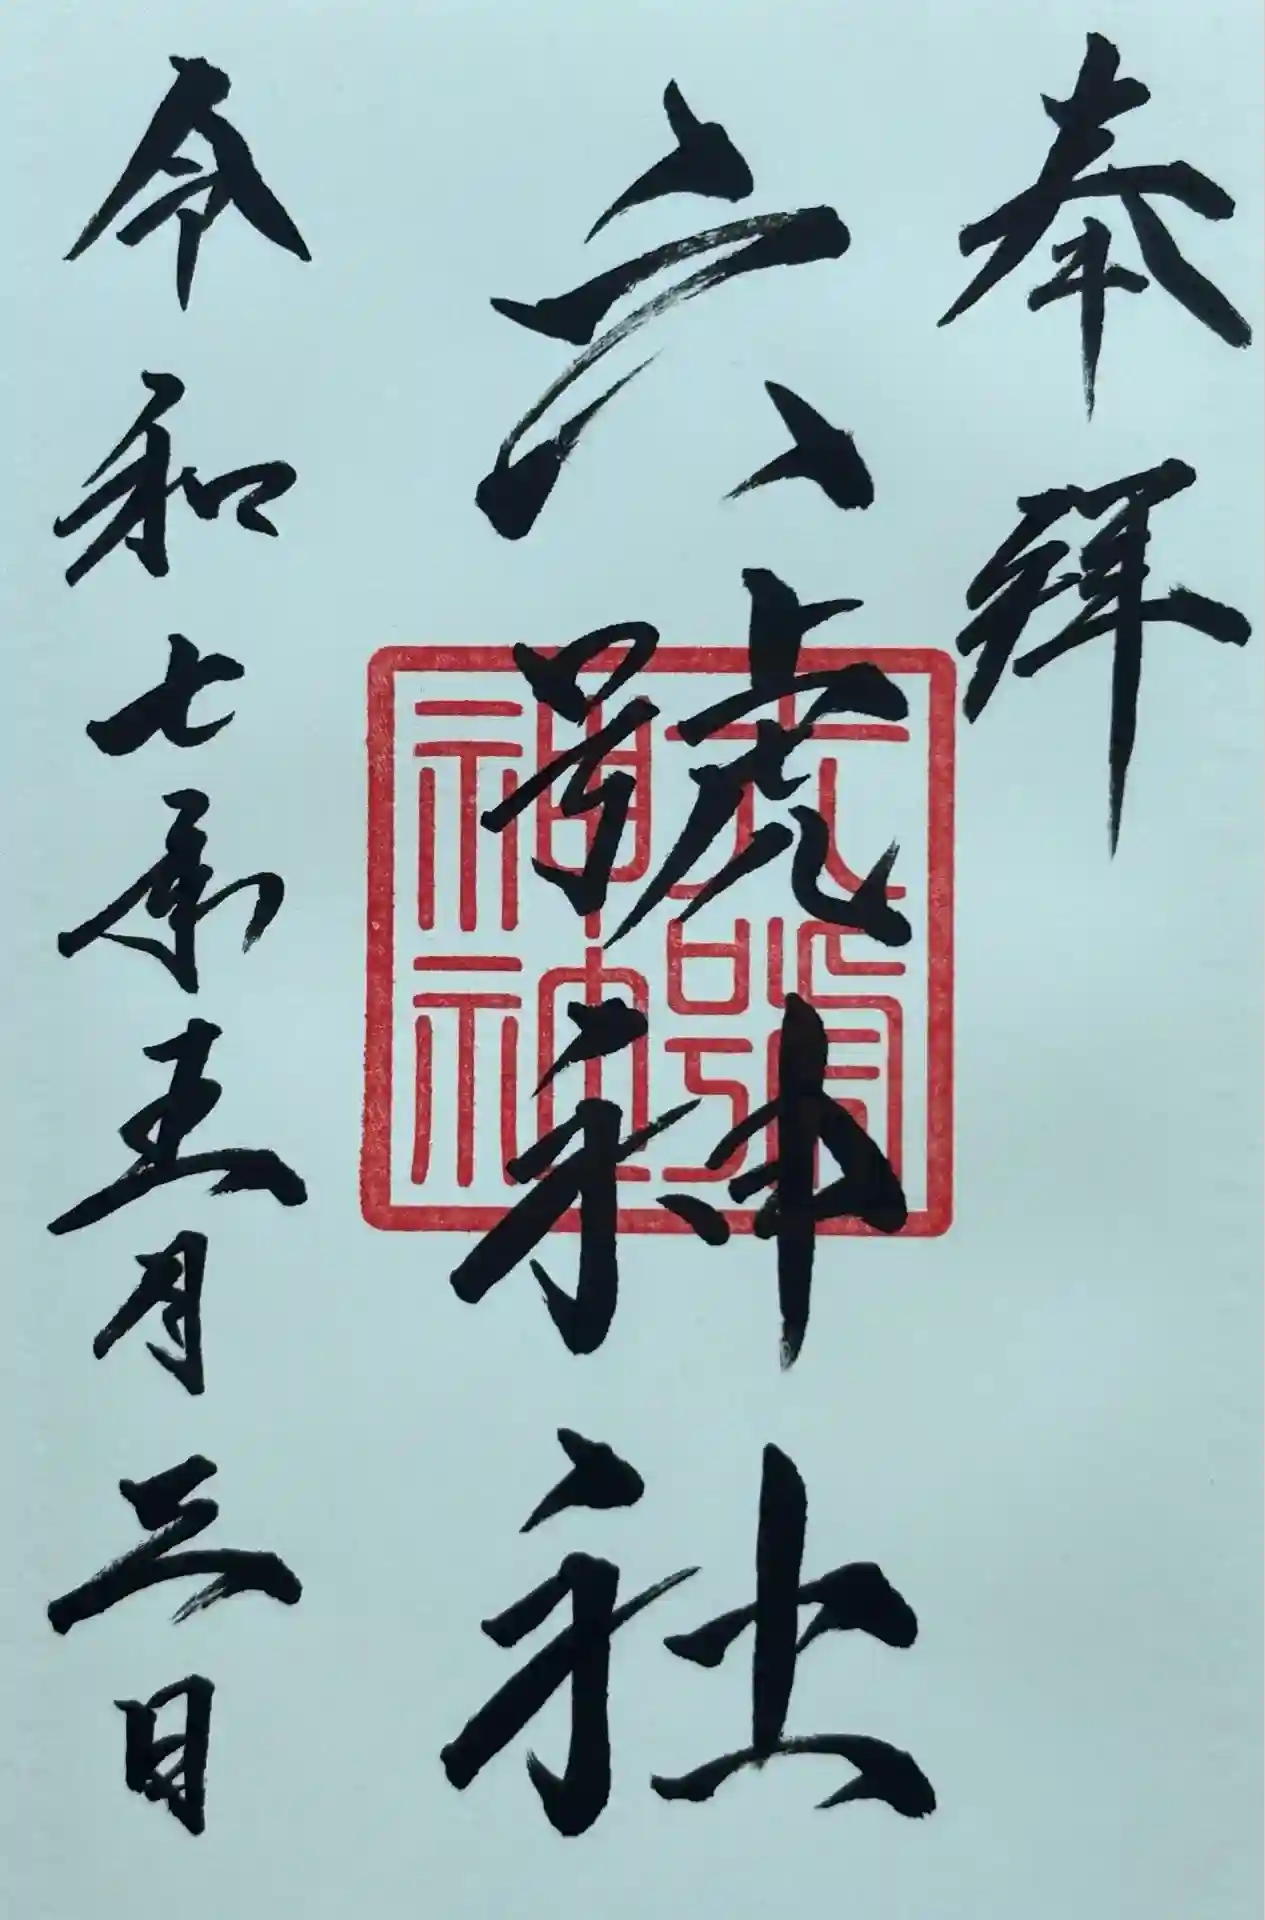 奉拜
六號神社
令和七年五月三日
六號神社